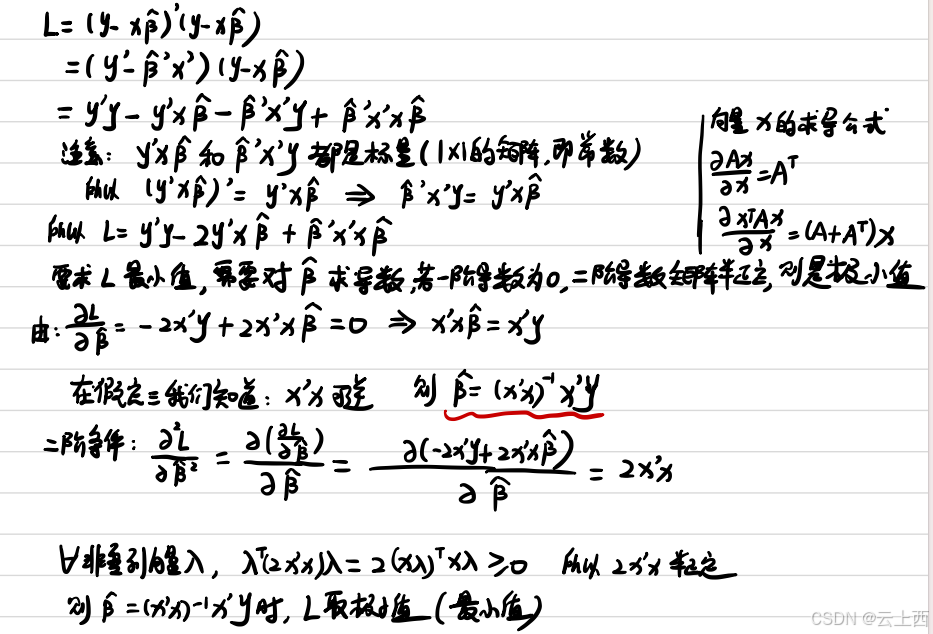 L = (y - xβ̂)'(y - xβ̂)
= (y' - β̂'x')(y - xβ̂)
= y'y - y'xβ̂ - β̂'x'y + β̂'x'xβ̂
注意: y'xβ̂ 和 β̂'x'y 都是标量(1×1的矩阵,即常数)
所以 (y'xβ̂)' = y'xβ̂ ⇒ β̂'x'y = y'xβ̂
所以 L = y'y - 2y'xβ̂ + β̂'x'xβ̂
向量 x 的求导公式
∂Ax/∂x = Aᵀ
∂xᵀAx/∂x = (A+Aᵀ)x
要求 L 最小值, 需要对 β̂ 求导数, 若一阶导数为0, 二阶导数矩阵半正定, 则是极小值
由: ∂L/∂β̂ = -2x'y + 2x'xβ̂ = 0 ⇒ x'xβ̂ = x'y
在假定三我们知道: x'x 可逆 则 β̂ = (x'x)⁻¹x'y
二阶条件: ∂²L/∂β̂² = ∂(∂L/∂β̂)/∂β̂ = ∂(-2x'y + 2x'xβ̂)/∂β̂ = 2x'x
∀非零列向量λ, λᵀ(2x'x)λ = 2(xλ)ᵀxλ ≥ 0 所以 2x'x 半正定
则 β̂ = (x'x)⁻¹x'y 时, L 取极小值 (最小值)
CSDN @云上西